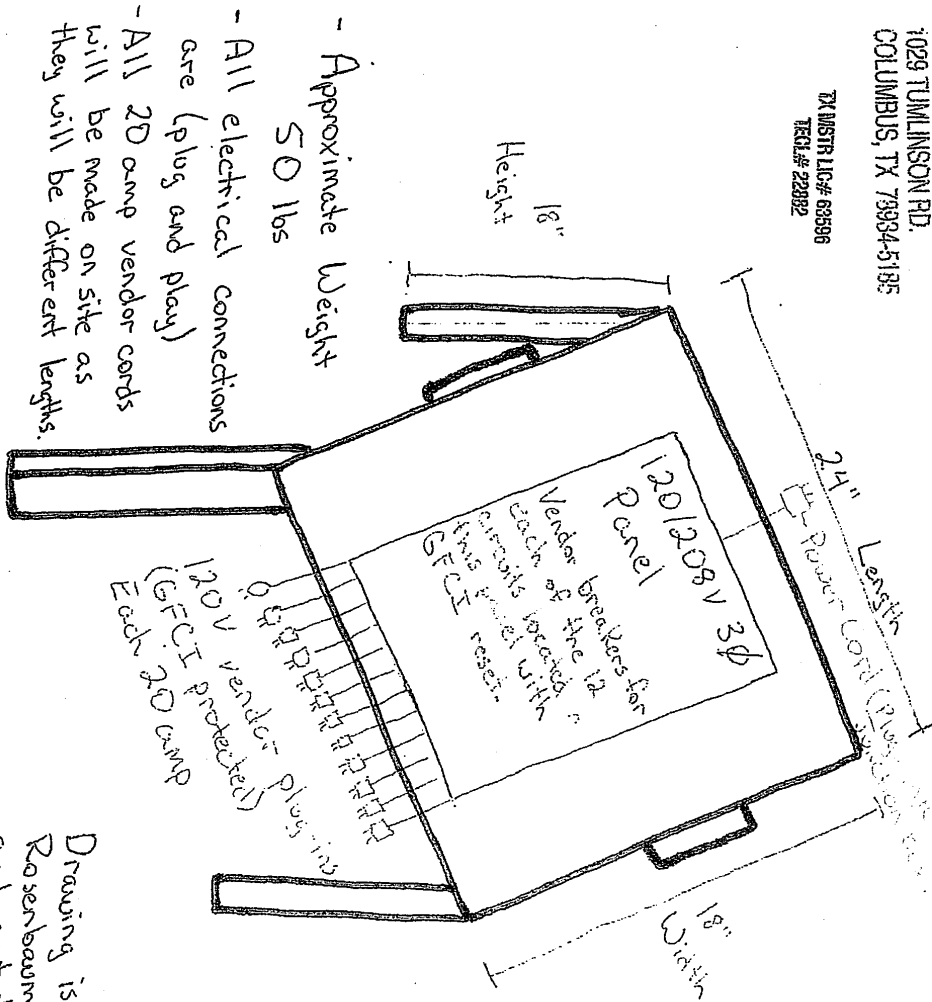 1029 TUMLINSON RD.
COLUMBUS, TX 78934-5185
TX MSTR LIC# 63596
TECL# 22882
24"
Length
Power Cord (Plugs
18"
Height
18"
Width
120/208V 3ϕ
Panel
Vendor breakers for
each of the 12
circuits located
this panel with
GFCI reset.
120V vendor plug-ins
(GFCI protected)
Each 20 amp
- Approximate Weight
50 lbs
- All electrical connections
are (plug and play)
- All 20 amp vendor cords
will be made on site as
they will be different lengths.
Drawing is
Rosenbaum